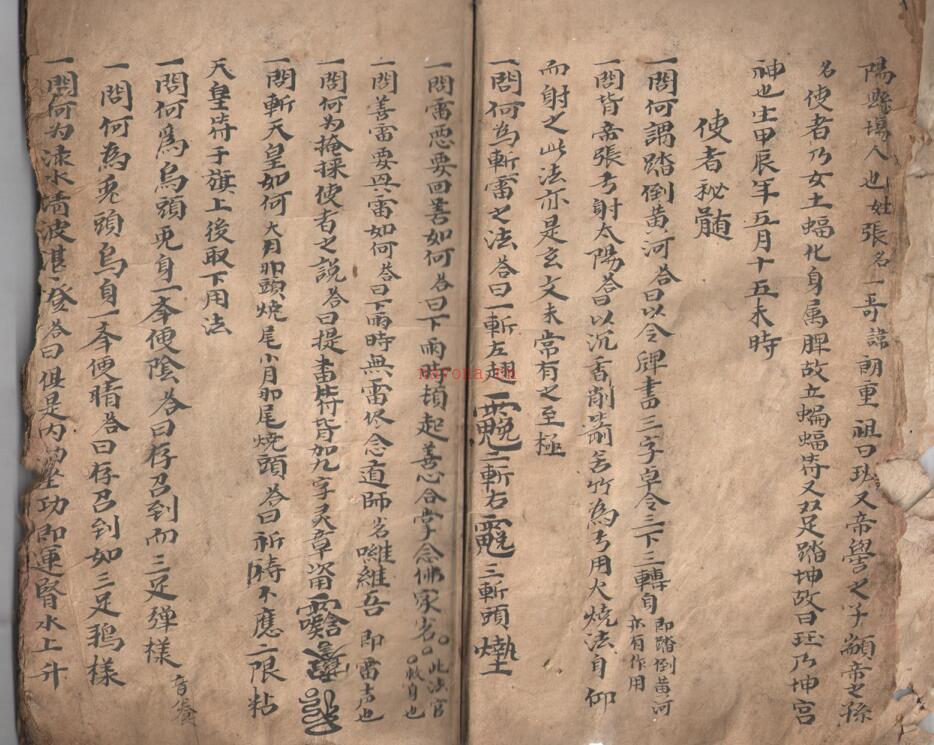 陽縣塲人也姓張名一哥諱朗重祖曰珐又帝嚳之子顓帝之孫
名使者乃女土蝠化身属脾故立蝙蝠啨又双足踏坤故曰珏乃坤宮
神也生甲辰年五月十五未時
使者秘髄
一問何謂踏倒黃河答曰以令牌書三字卓令三下三轉身即踏倒黃河亦有作用
一問背帝張弓射太陽答曰以沉香削箭苦竹為弓用火燒法自仰
而射之此法亦是玄文未常有之至極
一問何為斬雷之法答曰一斬左翅二斬右三斬頭
一問雷惡要回善如何答曰下雨時頓起善心合掌念佛家名此法官救自也
一問善雷要惡雷如何答曰下雨時無雷依念道師名囉維吾即雷吉也
一問何为掩採使者之説答曰提畫啨背加九字灵章
一問斬天皇如何大月卯頭燒尾小月卯尾燒頭答曰祈禱不應二限粘
天皇啨于旗上後取下用法
一問何爲烏頭兎身一奉便陰答曰存召到而三足弹様音養
一問何為兎頭烏身一奉便晴答曰存召到如三足鴉様
一問何为渌水清波湛登答曰俱是内功即運腎水上升